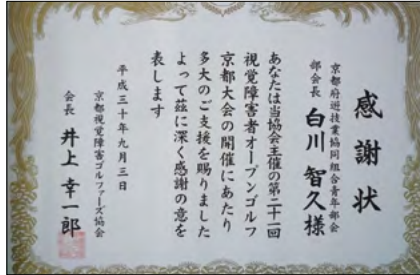 感謝状
京都府遊技業協同組合青年部会
部会長 白川 智久様
あなたは当協会主催の第二十一回
視覚障害者オープンゴルフ
京都大会の開催にあたり
多大のご支援を賜りました
よって茲に深く感謝の意を
表します
平成三十年九月三日
京都視覚障害ゴルファーズ協会
会長 井上 幸一郎